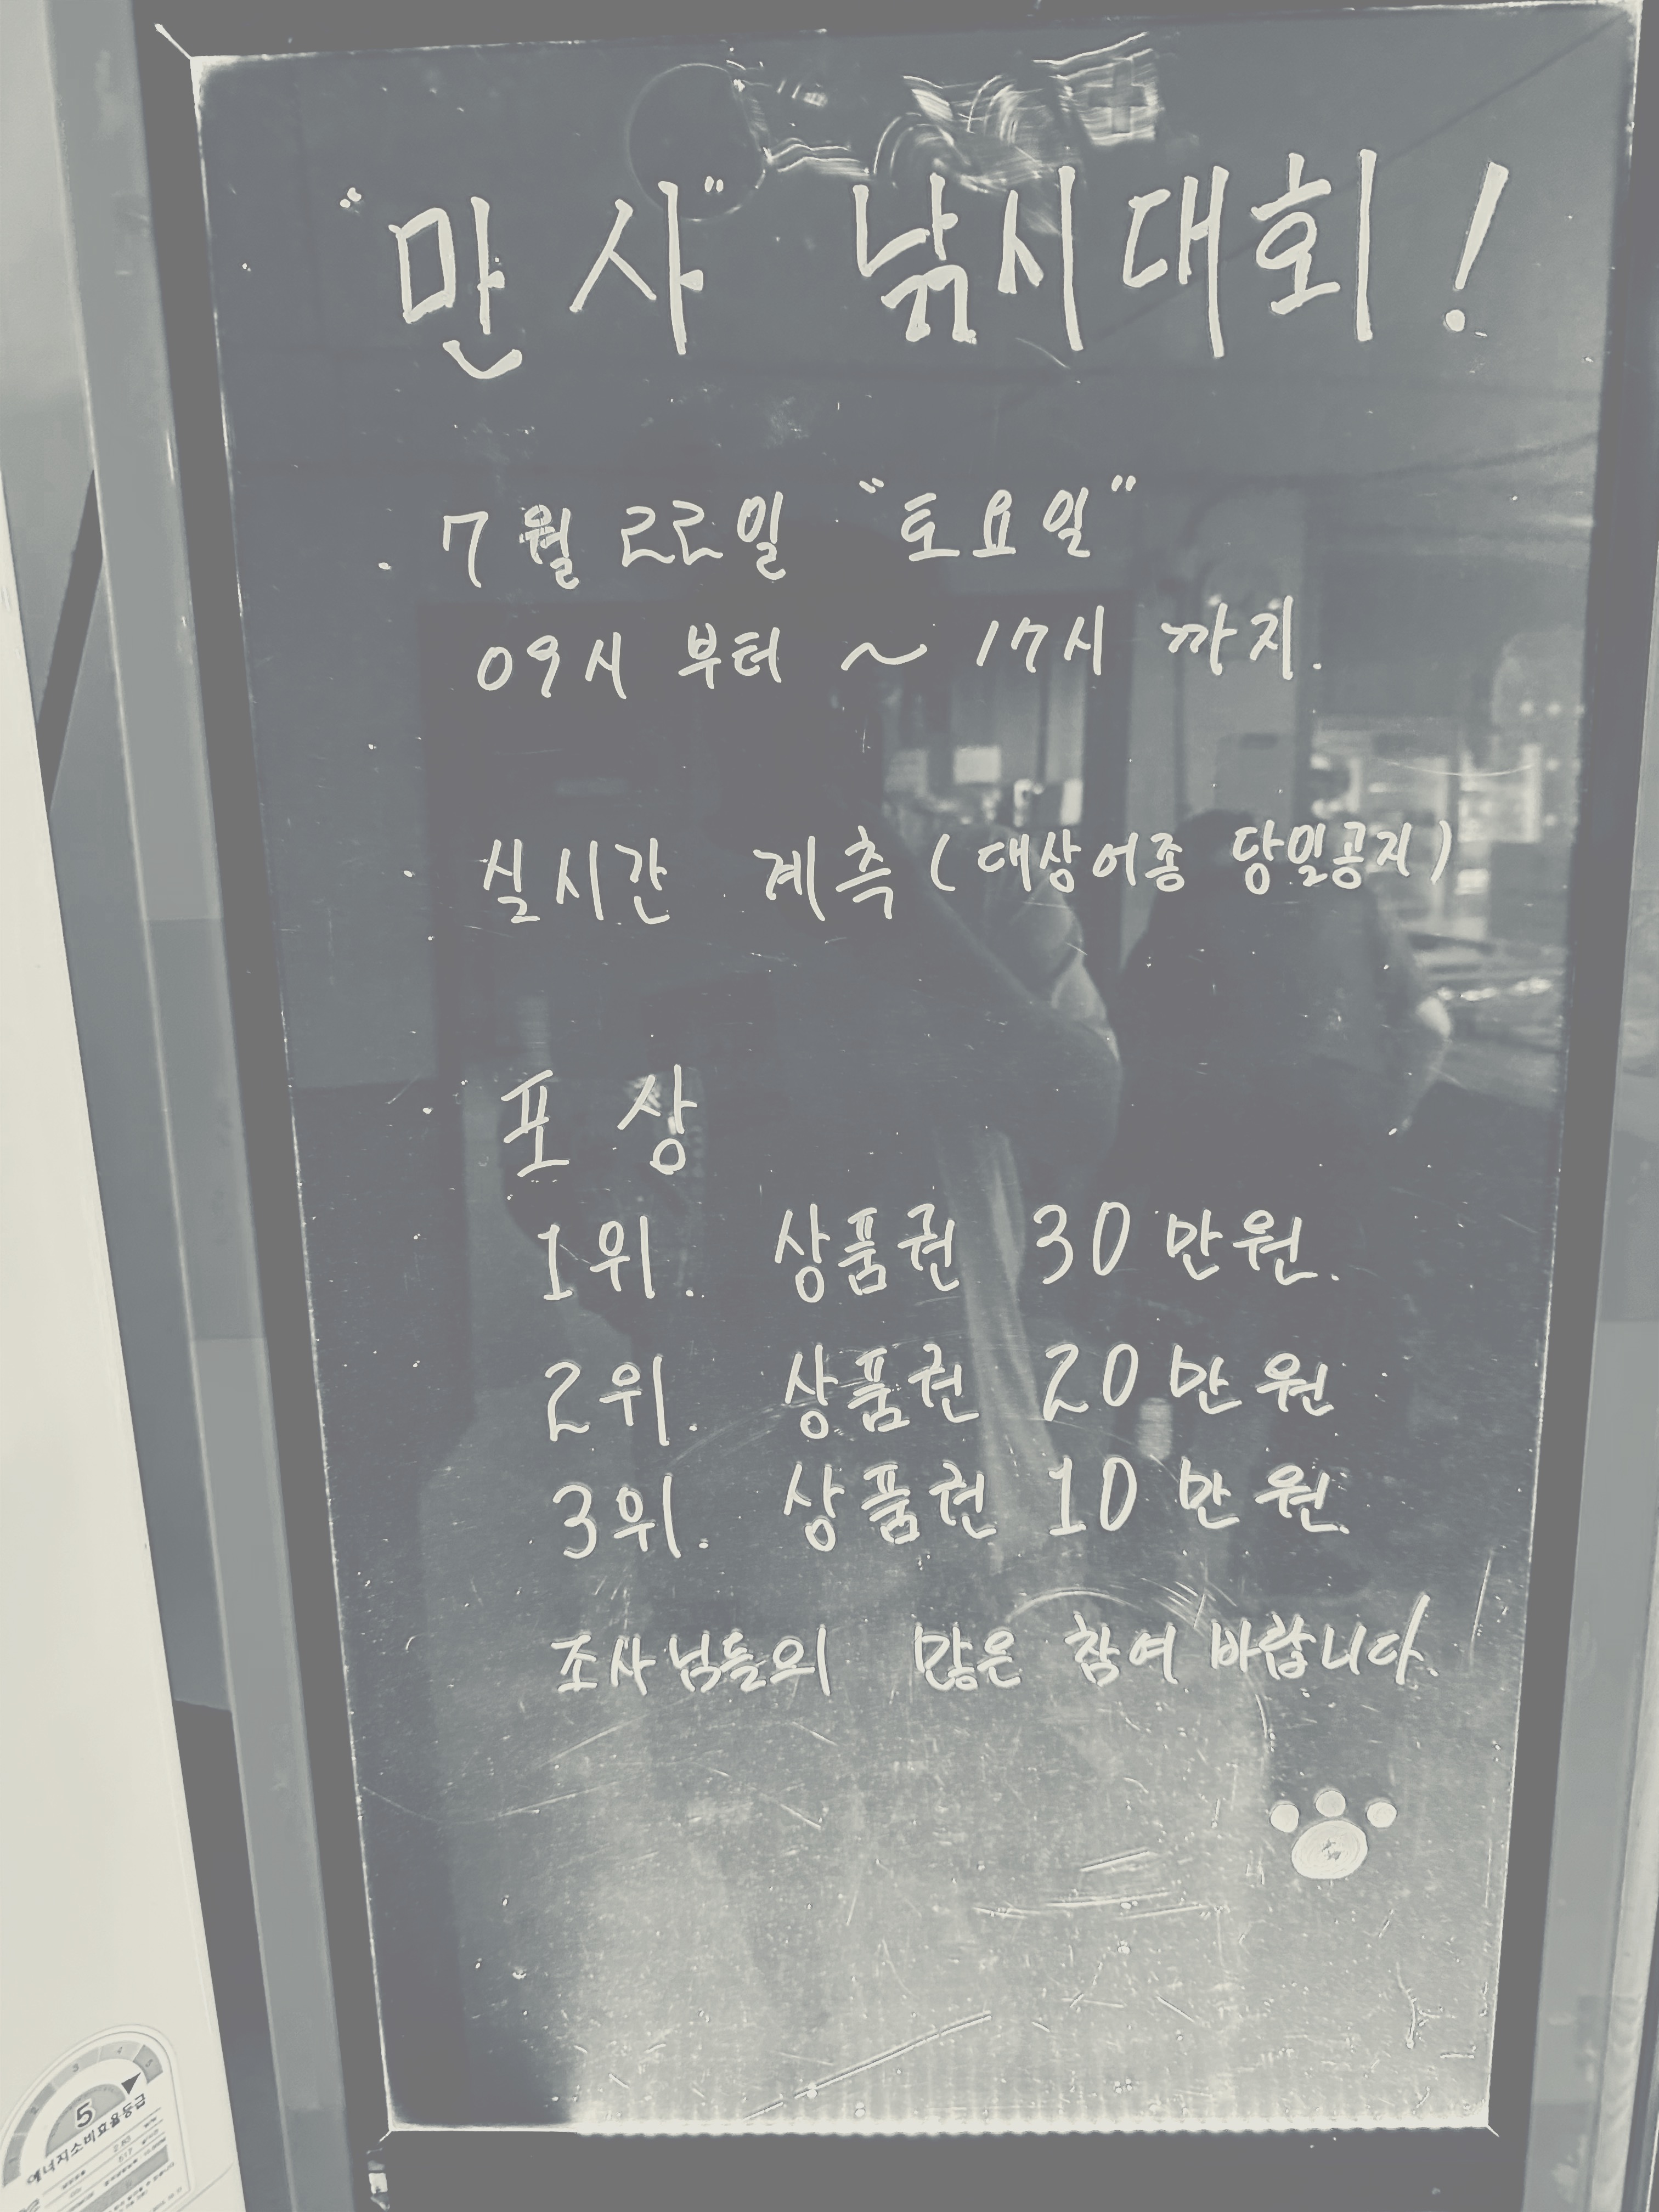 "만 사" 낚시대회!
7월 22일 "토요일"
09시 부터 ~ 17시 까지.
실시간 계측 (대상어종 당일공지)
포 상
1위. 상품권 30만원.
2위. 상품권 20만원
3위. 상품권 10만원.
조사님들의 많은 참여 바랍니다.
3 4 5
5
에너지소비효율등급